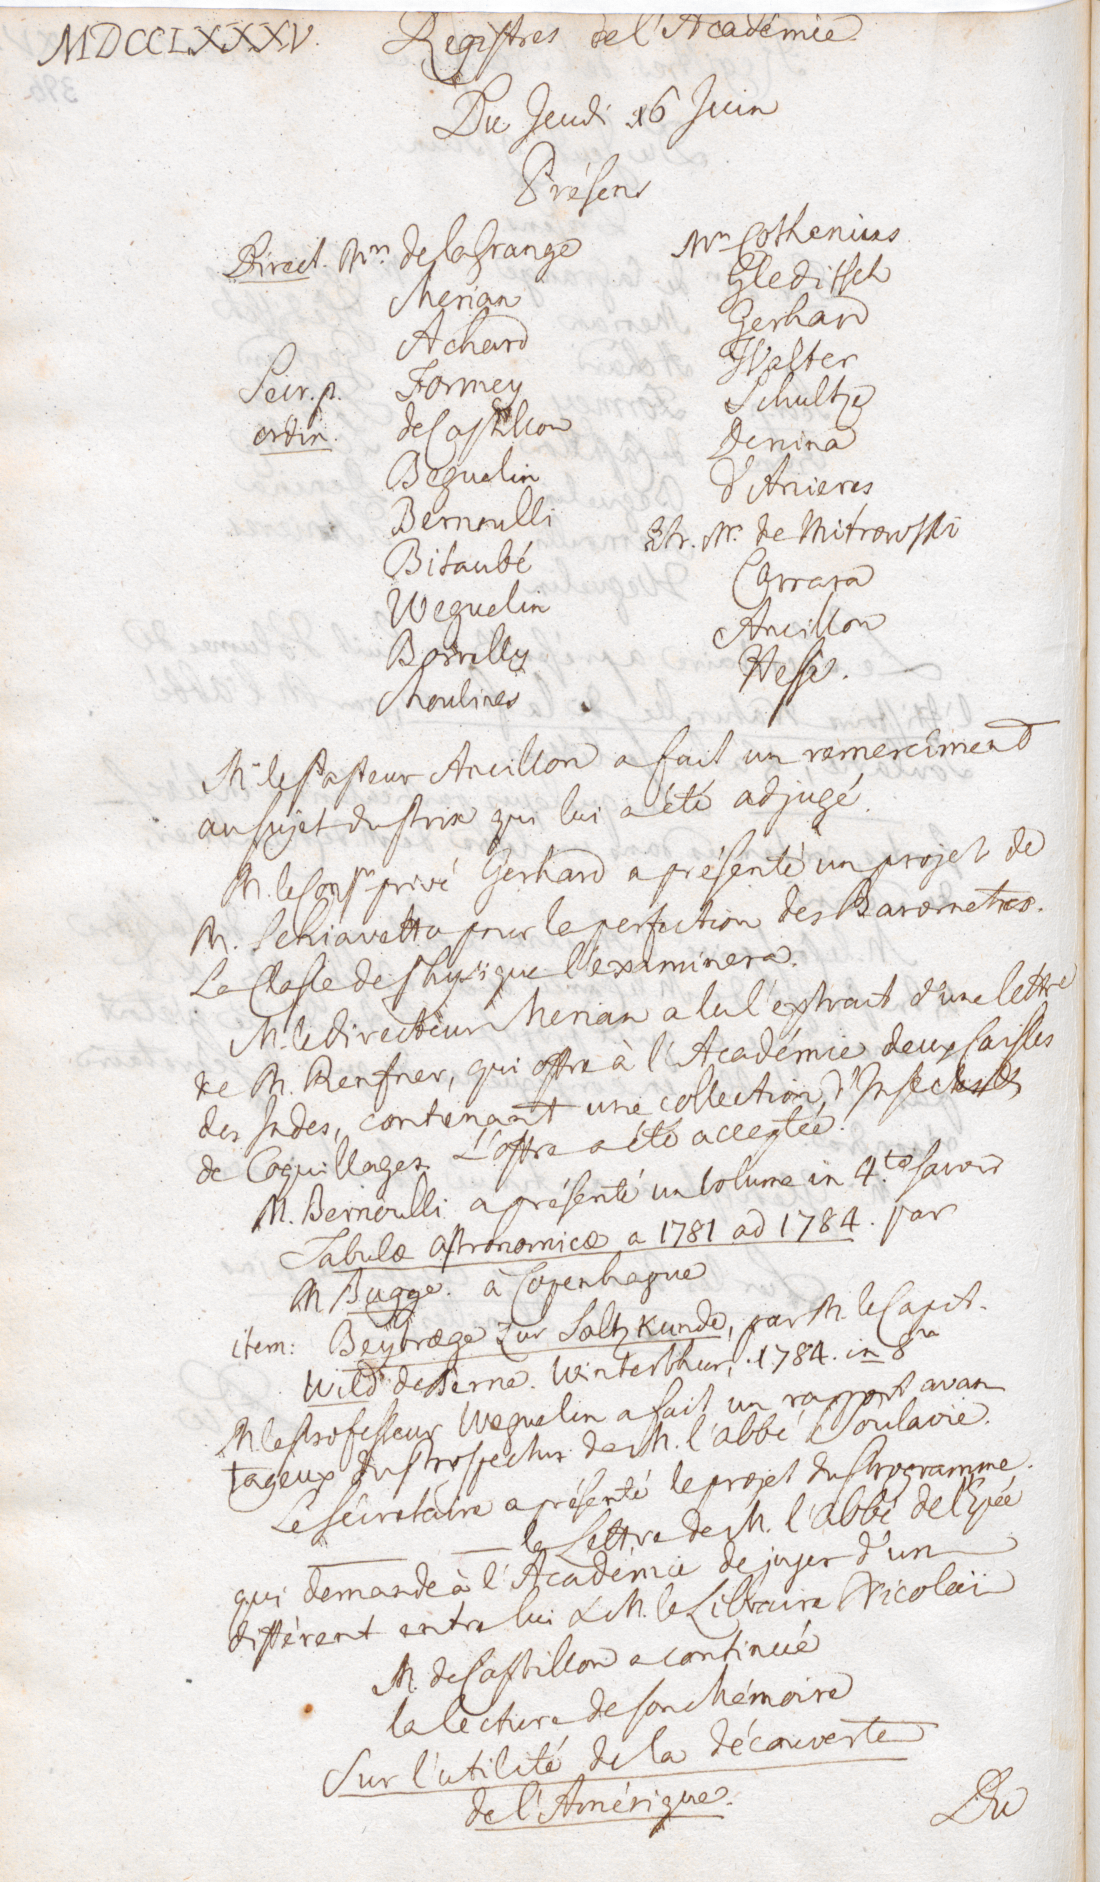 MDCCLXXXV. Registres de l'Académie
Du Jeudi 16 Juin
Présens
Direct. Mrs de la Grange
Merian
Achard
Secr. p. Formey
ordin. de Castillon
Beguelin
Bernoulli
Bitaubé
Weguelin
Borrelly
Moulines
Mrs Cothenius
Gleditsch
Gerhard
Walter
Schultze
Denina
d'Anieres
Etr. Mr. de Mitrowski
Carrara
Ancillon
Hesse.
Mr le Pasteur Ancillon a fait un remerciment
au sujet du Prix qui lui a été adjugé.
M. le Consr privé Gerhard a présenté un projet de
M. Schiavetto pour le perfection des Barometres.
La Classe de Physique l'examinera.
M. le Directeur Merian a lu l'extrait d'une lettre
de M. Renfner, qui offre à l'Académie deux Caisses
des Indes, contenant une collection d'Insectes &
de Coquillages. L'offre a été acceptée.
M. Bernoulli a présenté un volume in 4.to savoir
Tabulæ Astronomicæ a 1781 ad 1784. par
M Bugge. à Copenhague
item: Beytræge zur Saltzkunde, par M. le Capit.
Wild de Berne. Winterthur, 1784. in 8vo
M. le Professeur Weguelin a fait un rapport avan
tageux du Prospectus de M. l'abbé Soulavie.
Le Sécretaire a présenté le projet du Programme.
la Lettre de M. l'abbé de l'Epée
qui demande à l'Académie de juger d'un
différent entre lui & M. le Libraire Nicolaï
M. de Castillon a continué
la lecture de son Mémoire
Sur l'utilité de la découverte
de l'Amérique.
Du